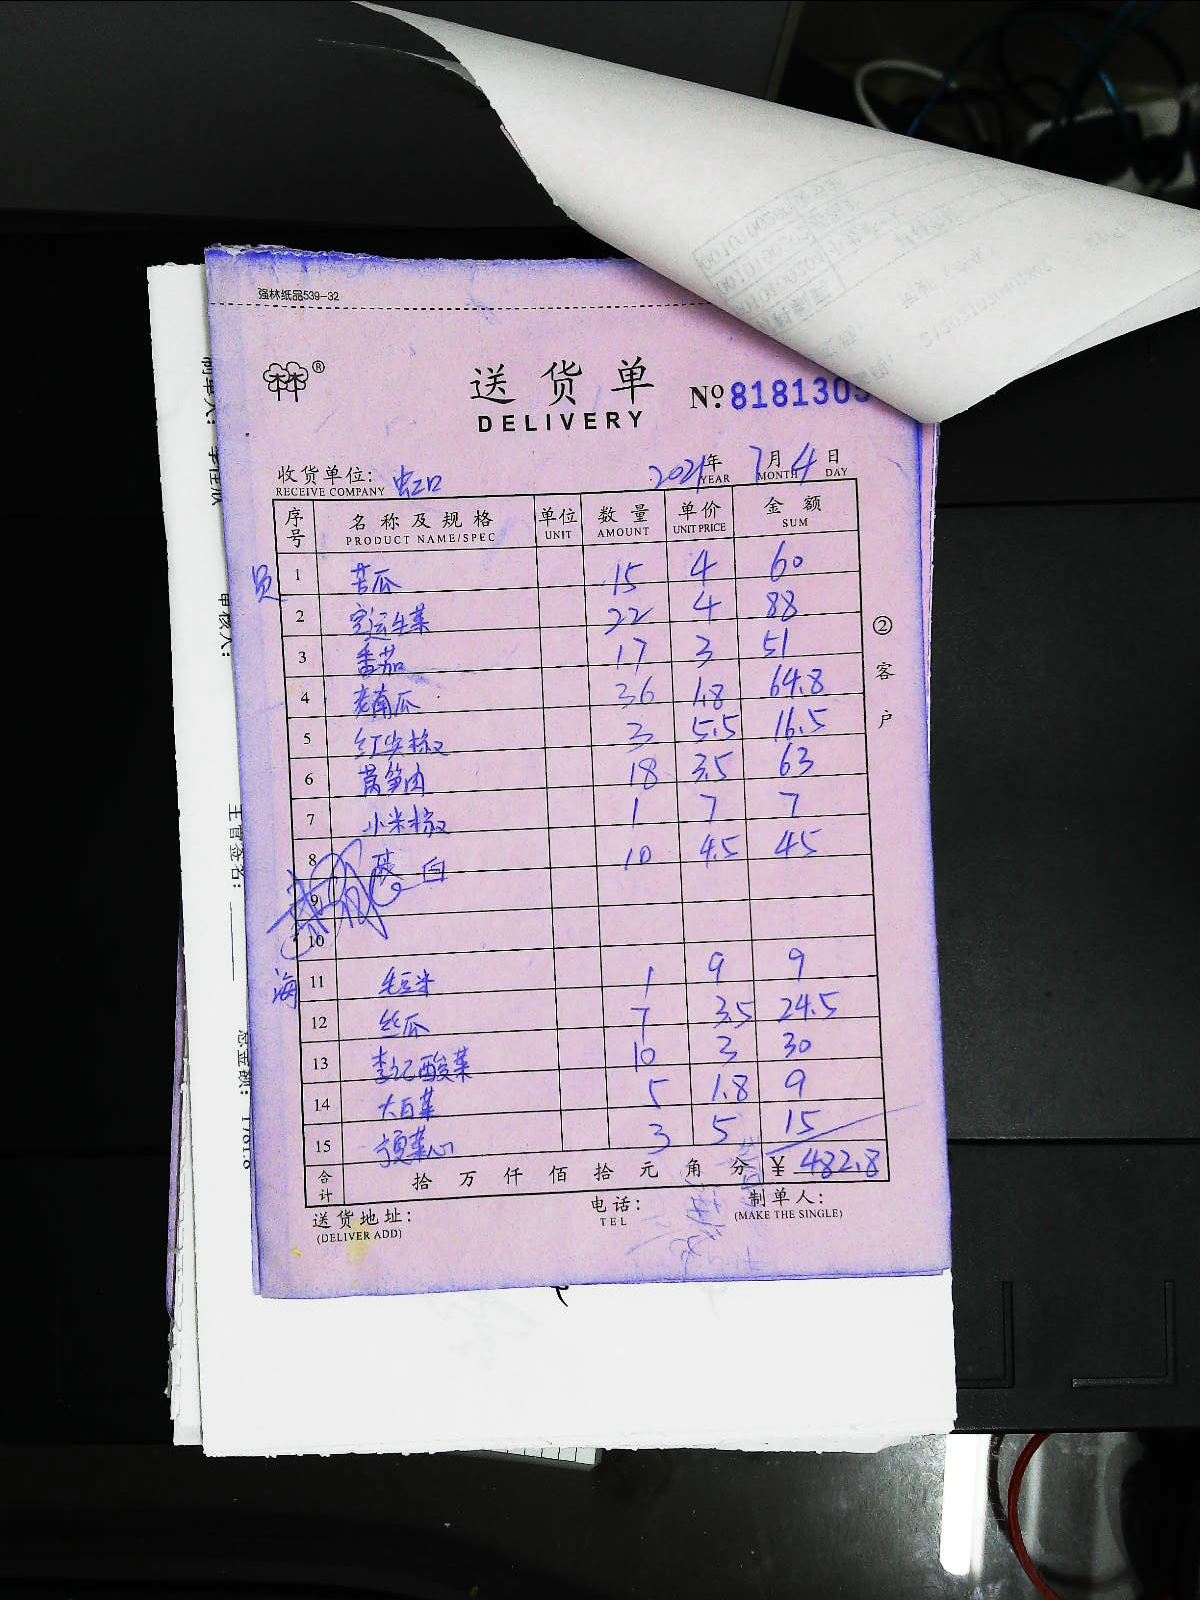 强林纸品539-32
林®
送货单
DELIVERY
№ 8181305
收货单位: 虹口 2021年 7月 4日
RECEIVE COMPANY YEAR MONTH DAY
序号 名称及规格 单位 数量 单价 金额
PRODUCT NAME/SPEC UNIT AMOUNT UNIT PRICE SUM
员
1 苦瓜 15 4 60
2 空运生菜 22 4 88
3 番茄 17 3 51
4 老南瓜 36 1.8 64.8
5 红尖椒 3 5.5 16.5
6 莴笋肉 18 3.5 63
7 小米椒 1 7 7
8 茭白 10 4.5 45
9
10
海
11 毛豆米 1 9 9
12 丝瓜 7 3.5 24.5
13 李记酸菜 10 3 30
14 大白菜 5 1.8 9
15 菜心 3 5 15
合计 拾 万 仟 佰 拾 元 角 分 ¥ 482.8
送货地址: 电话: 制单人:
(DELIVER ADD) TEL (MAKE THE SINGLE)
②客户
制单人:
审核人:
主管签名:
总金额: 1781.8